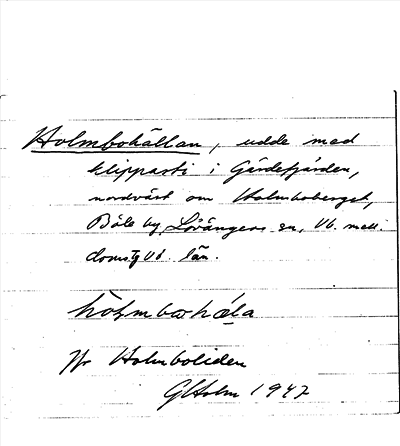 Holmbohällan, udde med
klipparti i Gärdefjärden,
nordväst om Holmboberget,
Böle by, Lövångers sn, Vb. mell.
doms. Vb. län.
hòlmbohǽla
Jfr Holmboliden
GHolm 1947